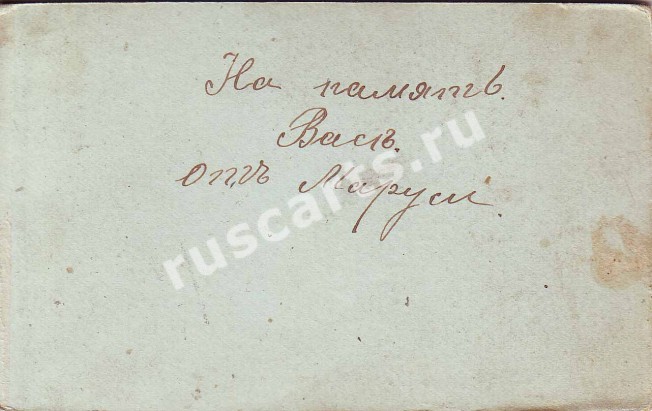 На память.
Васѣ.
отъ Маруси.
ruscarts.ru